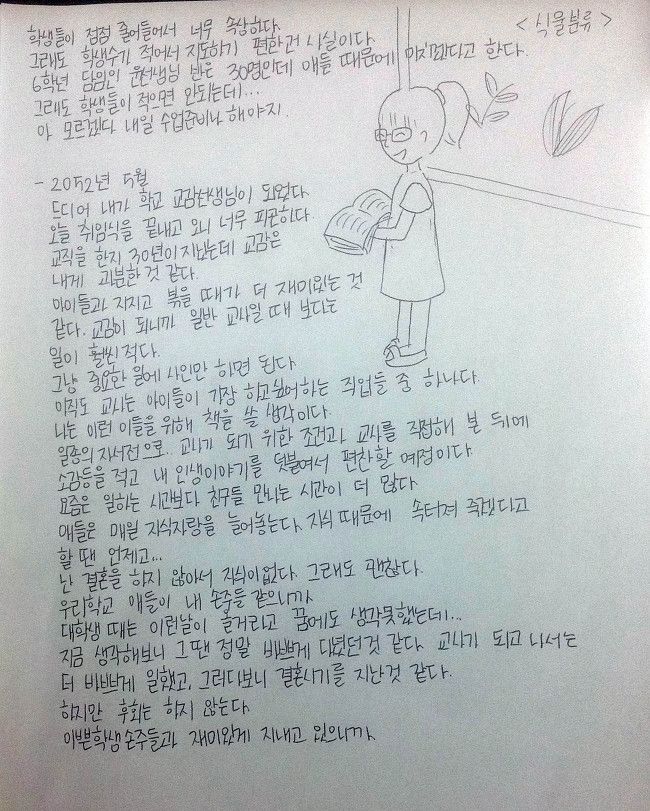 <식물분류>
학생들이 점점 줄어들어서 너무 속상하다.
그래도 학생수가 적어서 지도하기 편한건 사실이다.
6학년 담임인 윤선생님 반은 30명인데 애들 때문에 미치겠다고 한다.
그래도 학생들이 적으면 안되는데...
아 모르겠다 내일 수업준비나 해야지.
- 2052년 5월
드디어 내가 학교 교감선생님이 되었다.
오늘 취임식을 끝내고 오니 너무 피곤하다.
교직을 한지 30년이 지났는데 교감은
내게 과분한 것 같다.
아이들과 지지고 볶을 때가 더 재미있는 것
같다. 교감이 되니까 일반 교사일 때 보다는
일이 훨씬 적다.
그냥 중요한 일에 사인만 하면 된다.
아직도 교사는 아이들이 가장 하고싶어하는 직업들 중 하나다.
나는 이런 이들을 위해 책을 쓸 생각이다.
일종의 자서전으로.. 교사가 되기 위한 조건과 교사를 직접해 본 뒤에
소감등을 적고 내 인생이야기를 덧붙여서 편찬할 예정이다.
요즘은 일하는 시간보다 친구들 만나는 시간이 더 많다
애들은 매일 자식자랑을 늘어놓는다. 자식 때문에 속터져 죽겠다고
할 땐 언제고...
난 결혼을 하지 않아서 자식이없다. 그래도 괜찮다.
우리학교 애들이 내 손주들 같으니까.
대학생 때는 이런날이 올거라고 꿈에도 생각못했는데...
지금 생각해보니 그땐 정말 바쁘게 다녔던것 같다. 교사가 되고 나서는
더 바쁘게 일했고, 그러다보니 결혼시기를 지난것 같다.
하지만 후회는 하지 않는다.
이쁜학생손주들과 재미있게 지내고 있으니까.